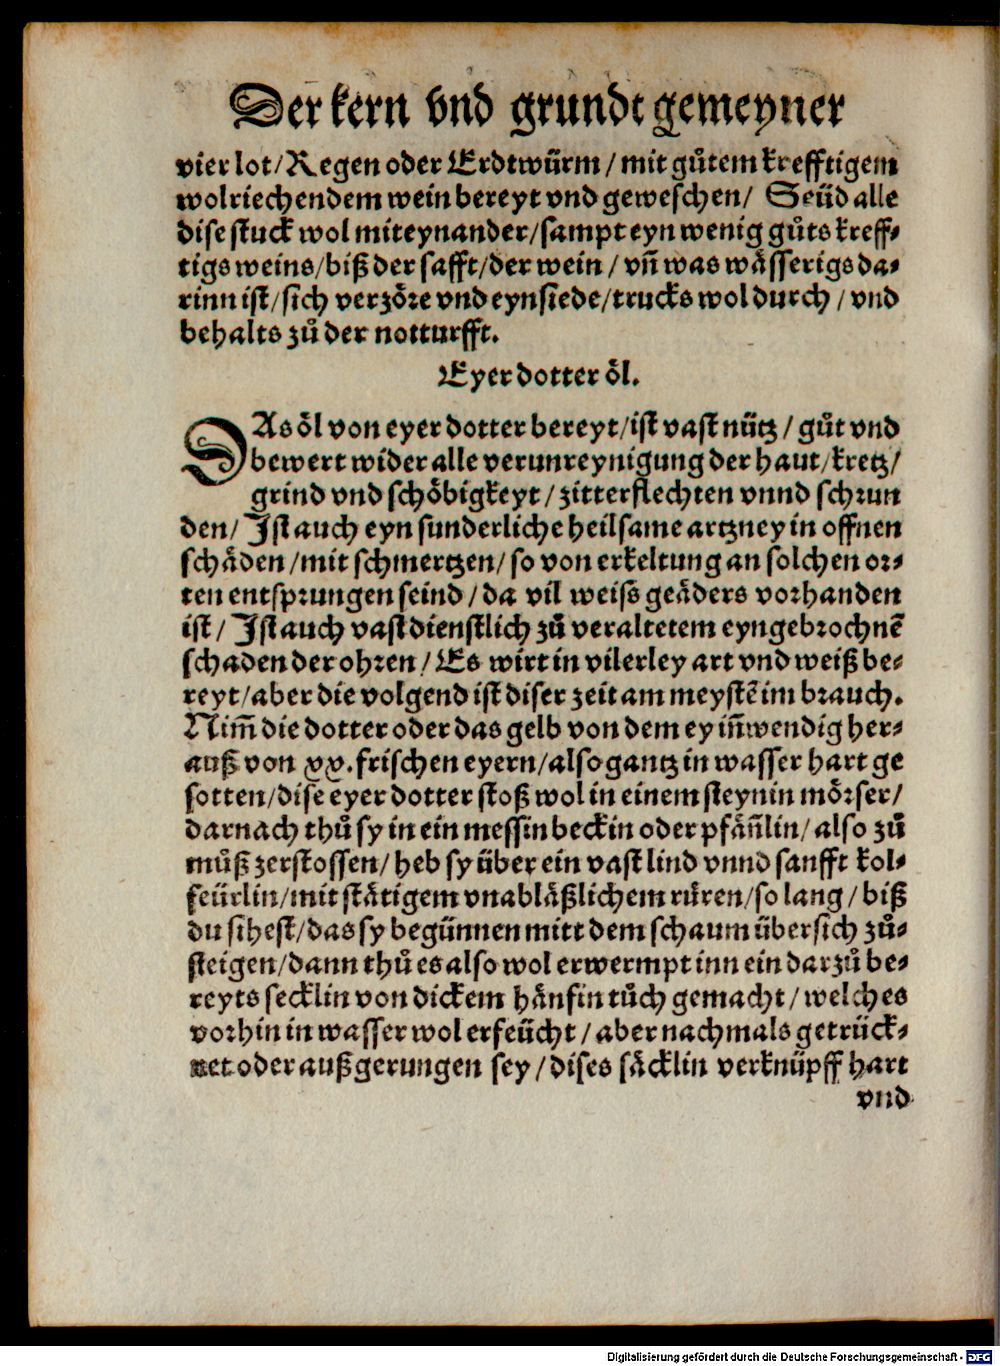 Der kern vnd grundt gemeyner
vier lot/Regen oder Erdtwürm/mit gůtem krefftigem
wolriechendem wein bereyt vnd geweschen/ Seüd alle
dise stuck wol miteynander/sampt eyn wenig gůts kreff-
tigs weins/biß der safft/der wein/vñ was wässerigs da-
rinn ist/sich verzöre vnd eynsiede/trucks wol durch/vnd
behalts zů der notturfft.
Eyer dotter öl.
DAs öl von eyer dotter bereyt/ist vast nütz/gůt vnd
bewert wider alle verunreynigung der haut/kretz/
grind vnd schöbigkeyt/zitterflechten vnnd schrun
den/Ist auch eyn sunderliche heilsame artzney in offnen
schäden/mit schmertzen/so von erkeltung an solchen or-
ten entsprungen seind/da vil weiß geäders vorhanden
ist/Ist auch vast dienstlich zů veraltetem eyngebrochnē
schaden der ohren/Es wirt in vilerley art vnd weiß be-
reyt/aber die volgend ist diser zeit am meystē im brauch.
Nim̃ die dotter oder das gelb von dem ey iñwendig her-
auß von xx. frischen eyern/also gantz in wasser hart ge
sotten/dise eyer dotter stoß wol in einem steynin mörser/
darnach thů sy in ein messin beckin oder pfäñlin/also zů
můß zerstossen/heb sy über ein vast lind vnnd sanfft kol-
feürlin/mit stätigem vnabläßlichem rüren/so lang/biß
du sihest/das sy begünnen mitt dem schaum übersich zů-
steigen/dann thů es also wol erwermpt inn ein darzů be-
reyts secklin von dickem hänfin tůch gemacht/welches
vorhin in wasser wol erfeücht/aber nachmals getrück-
net oder außgerungen sey/dises säcklin verknüpff hart
vnd
Digitalisierung gefördert durch die Deutsche Forschungsgemeinschaft - DFG